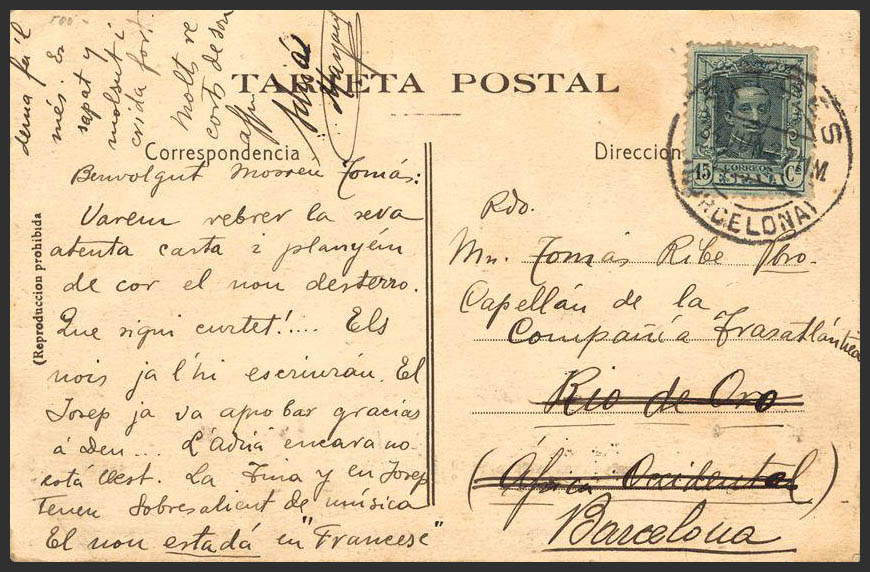 TARJETA POSTAL
Correspondencia
Benvolgut Mossen Tomás:
Varem rebrer la seva
atenta carta i planyém
de cor el nou desterro.
Que sigui curtet!.... Els
nois ja l'hi escriurán. El
Josep ja va aprobar gracias
á Deu... L'Adriá encara no
está llest. La Fina y en Josep
tenen Sobresalient de música
El nou estadá en "Francesc"
dema fá il
més. Es
sapat y
molsut i
crida fort.
Molt re
cort de son
affm
(Reproduccion prohibida
Direccion
Rdo.
Mn. Tomás Ribe Pbro.
Capellán de la
Compañía Trasatlántica
Rio de Oro
(África Occidental)
Barcelona
CORREOS
ESPAÑA
15 Cs